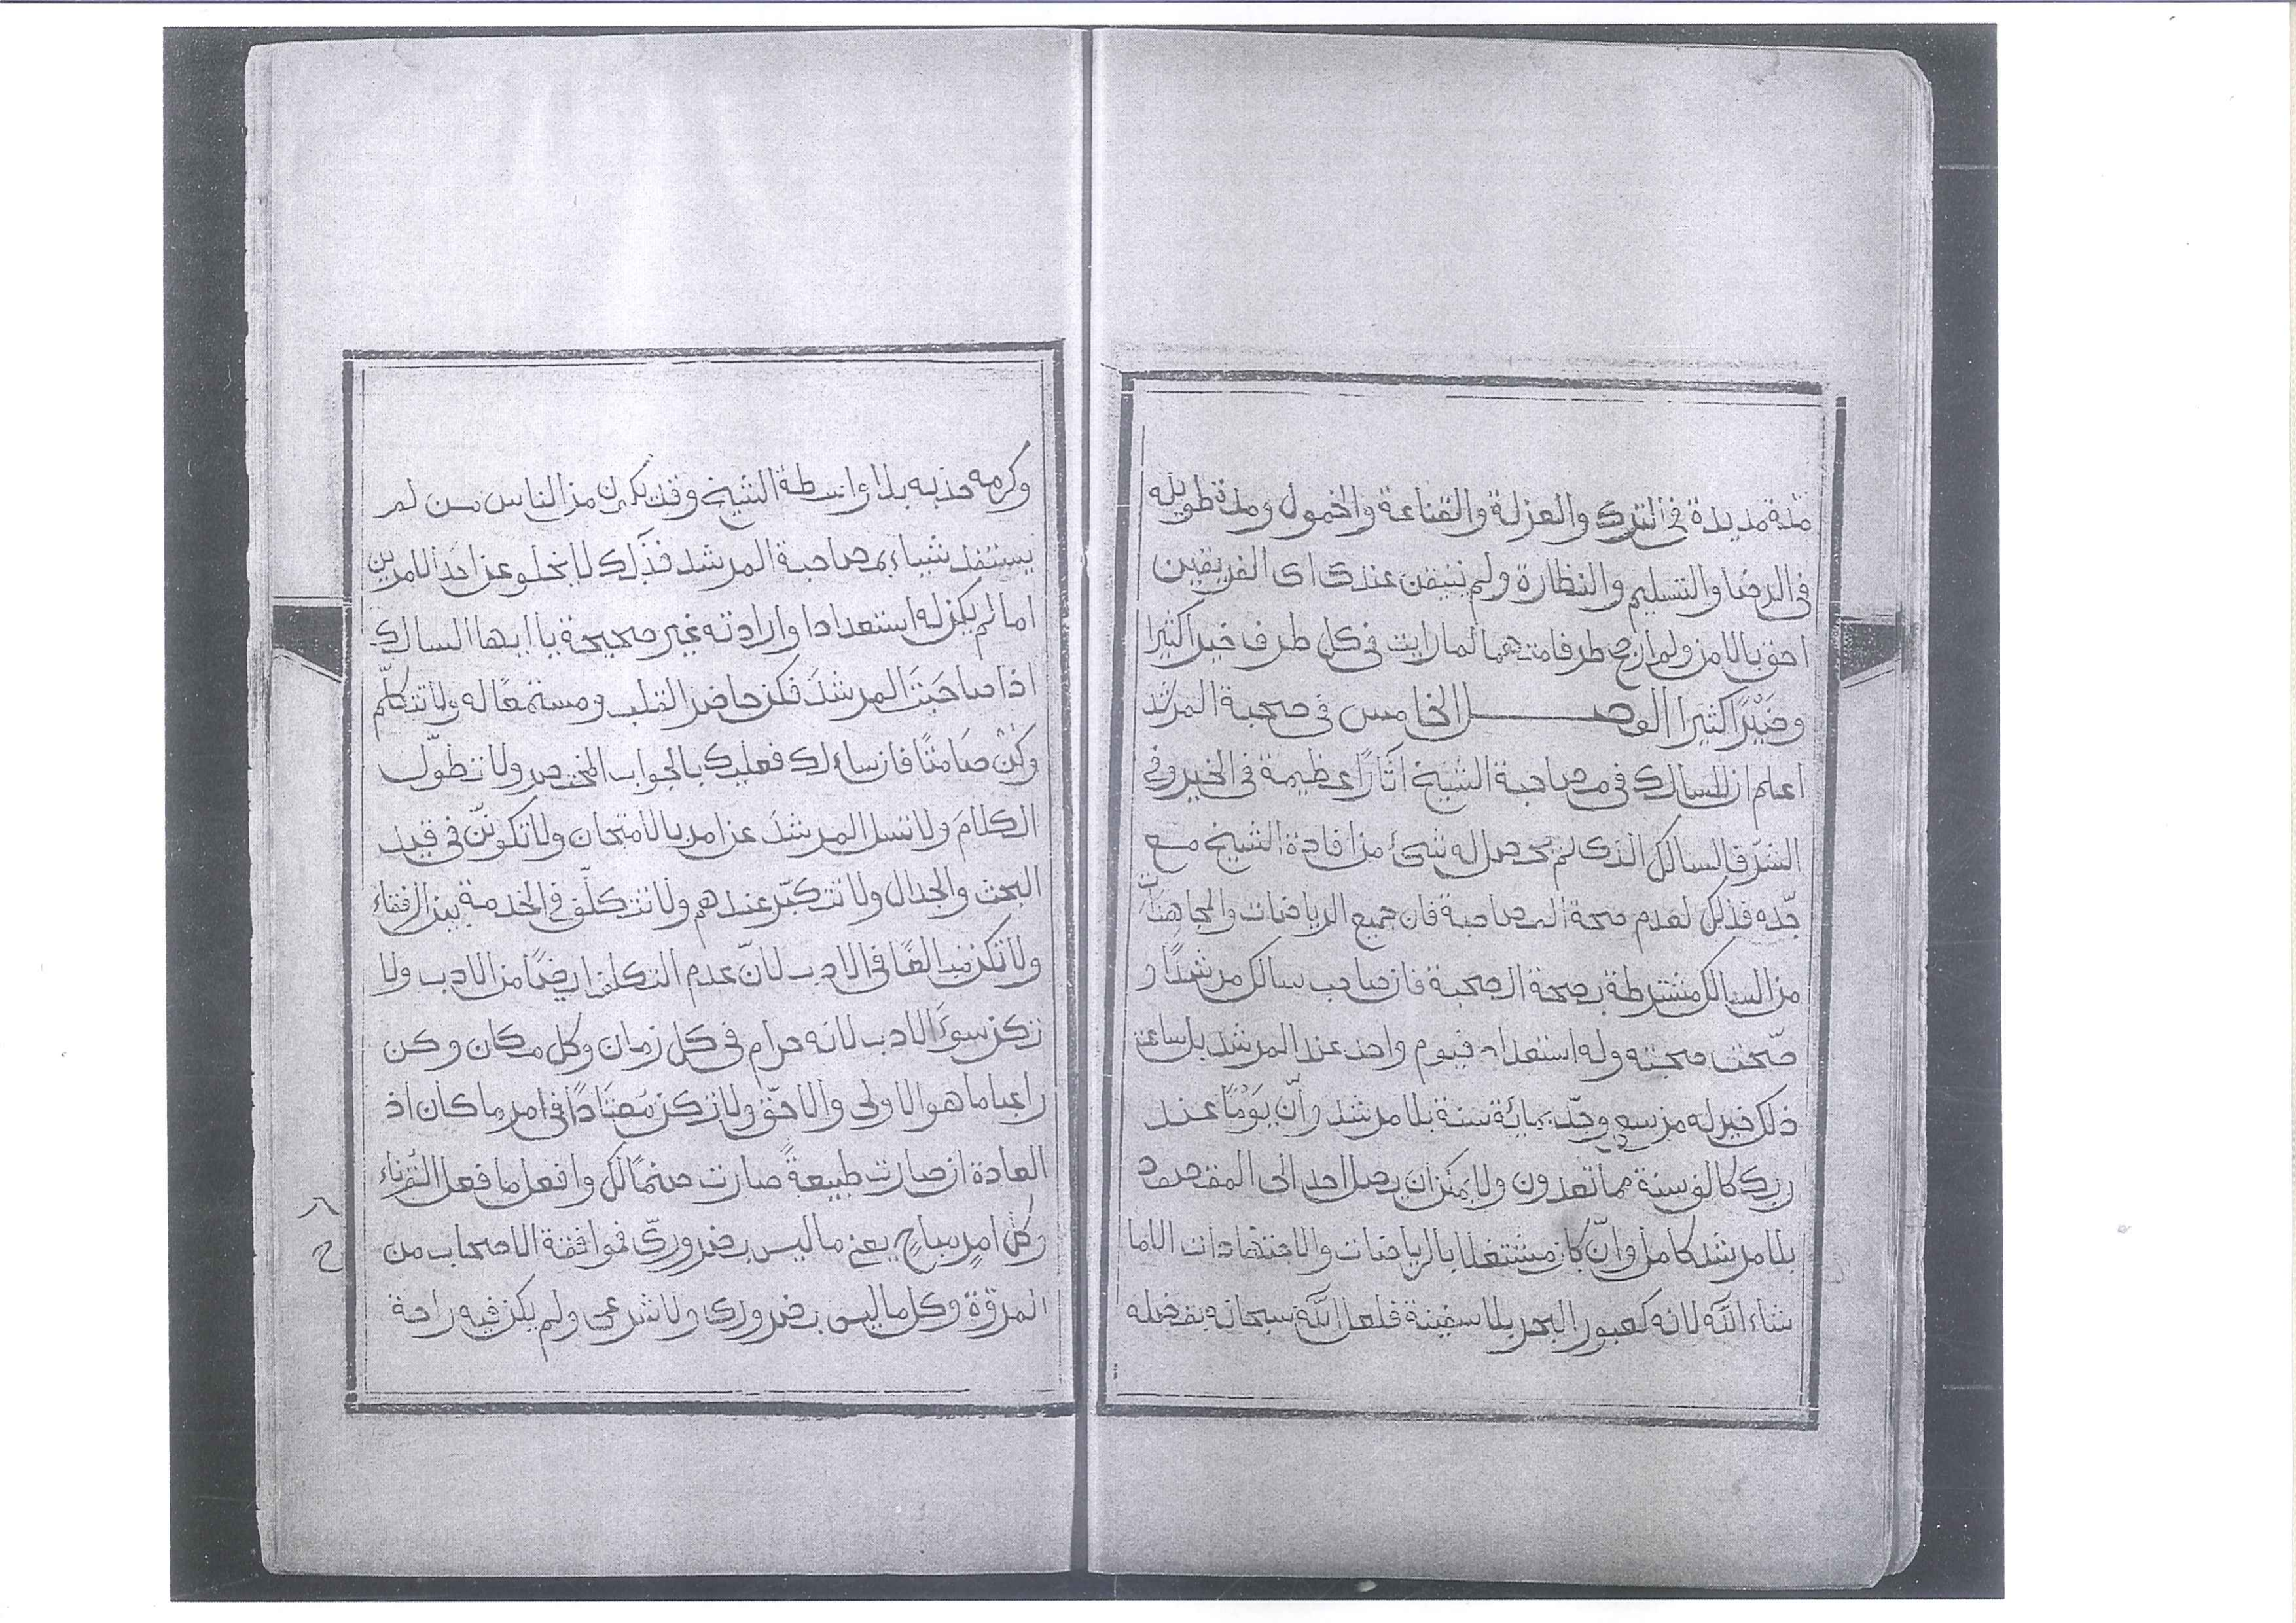 مدة مديدة فى الترك والعزلة والقناعة والخمول ومدة طويلة
فى الرضا والتسليم والنظارة ولم نتيقن عندى اى الفريقين
احق بالامن ولم ارجح طرفا منهما لما رايت فى كل طرف خيرا كثيرا
وضَيْرًا كثيرا الفصل الخامس فى صحبة المرشد
اعلم ان للسالك فى مصاحبة الشيخ اثارًا عظيمة فى الخير وفى
الشر فالسالك الذى لم يحصل له شئ من افادة الشيخ مع
جدّه فذلك لعدم صحة المصاحبة فان جميع الرياضات والمجاهدات
من السالك مشترطة بصحة الصحبة فان صاحب سالك مرشدًا و
صحّت صحبته وله استعداد فيوم واحد عند المرشد بل ساعة
ذلك خير له من سعى وجدّ بمائة سنة بلا مرشد وانّ يَوْمًا عند
ربك كالف سنة مما تعدون ولا يمكن ان يصل احد الى المقصود
بلا مرشد كامل وانّ كان مشتغلا بالرياضات والاجتهادات الاما
شاء اللّٰه لانه كعبور البحر بلا سفينة فلعل اللّٰه سبحانه بفضله
وكرمه جذبه بلا واسطة الشيخ وقد يكون من الناس من لم
يستفد شياء بمصاحبة المرشد فذلك لا يخلو عن احد الامرين
اما لم يكن له استعدادا وارادته غير صحيحة يا ايها السالك
اذا صاحَبتَ المرشدَ فكن حاضر القلب ومستمعًا له ولا تتكلّم
وكُنْ صَامتًا فان ساءلك فعليك بالجواب المختصر ولا تطوّل
الكلامَ ولا تسل المرشدَ عن امر بالامتحان ولا تكوننّ فى قيد
البحث والجدال ولا تتكبّر عندهم ولا تتكلّف فى الخدمة بين الرفقاء
ولا تكن مبالغًا فى الادب لانّ عدم التكلف ايضًا من الادب ولا
تكن سوءَ الادب لانه حرام فى كل زمان وكل مكان وكن
راعيا ما هو الاولى والاحقّ ولا تكن مُعتَادًا فى امر ما كان اذ
العادة ان صارت طبيعةً صارت صنمًا لك وافعل ما فعل القرناء
وكل امرٍ مباحٍ يعنى ما ليس بضرورىّ فموافقة الاصحاب من
المروّة وكل ما ليس بضرورى ولا شرعى ولم يكن فيه راحة